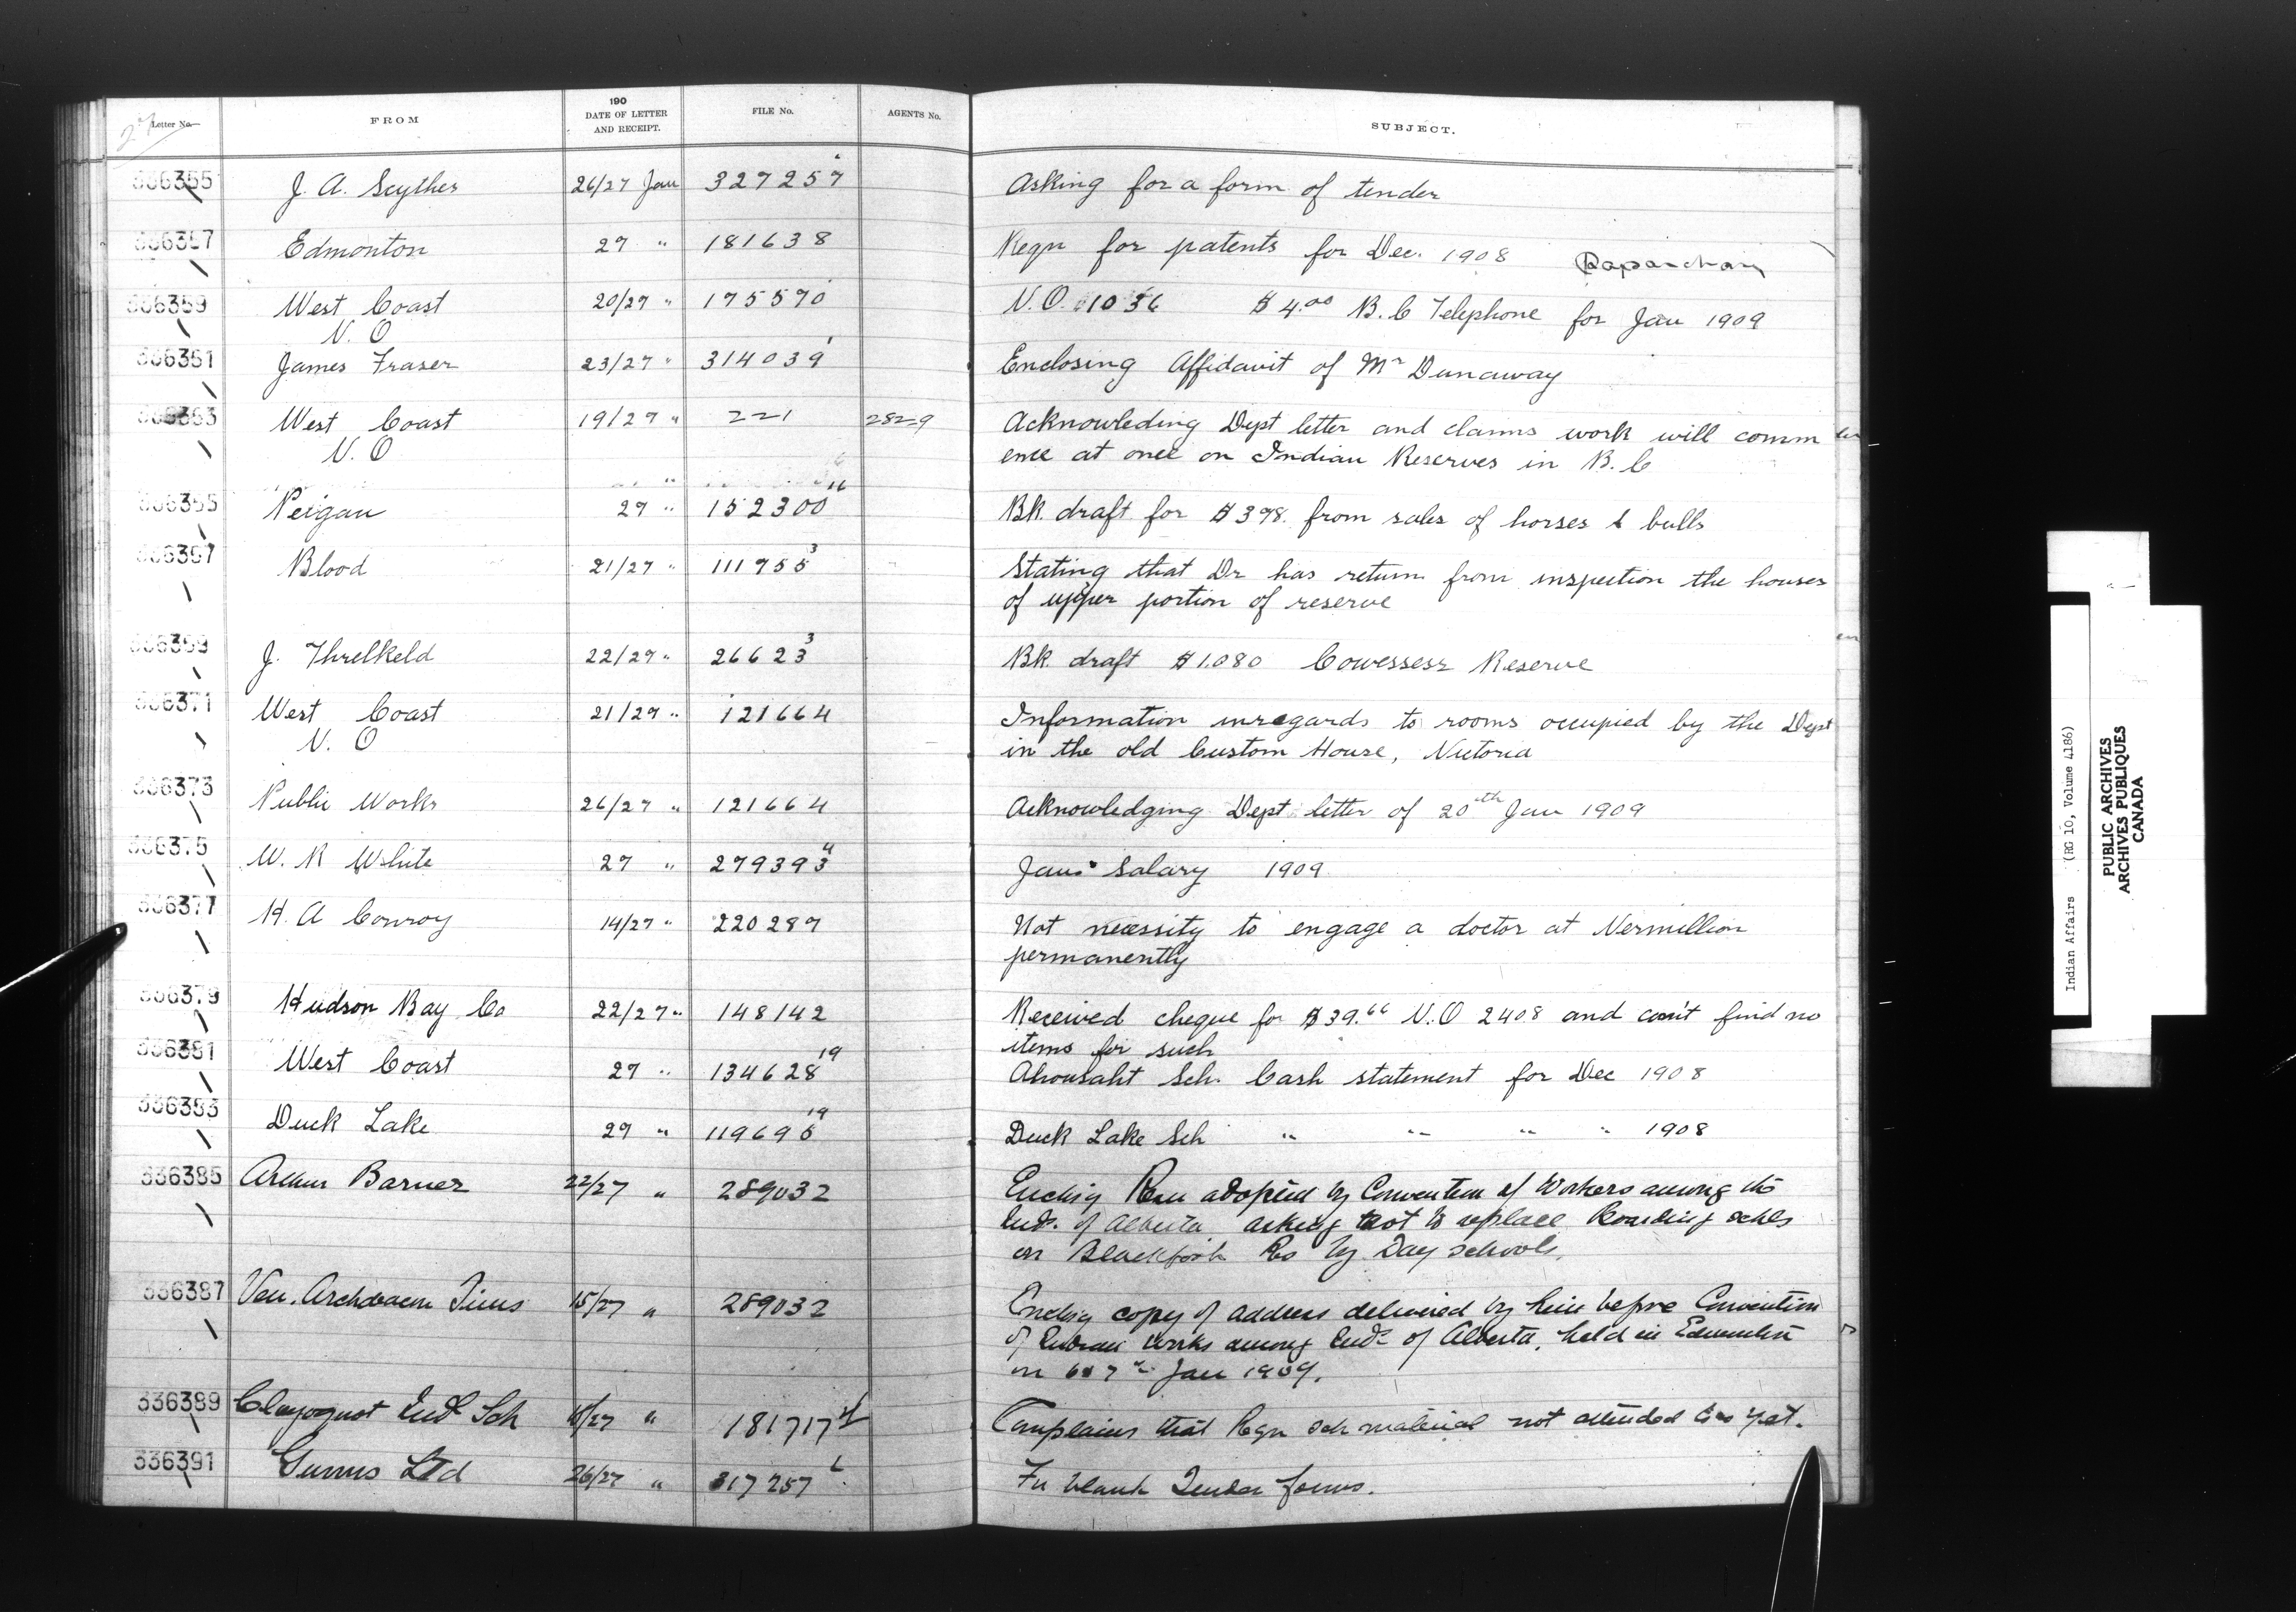 Letter No. FROM 190 DATE OF LETTER AND RECEIPT. FILE No. AGENTS No. SUBJECT.
27
336355 J. A. Scythes 26/27 Jan 327257 Asking for a form of tender
336357 Edmonton 27 " 181638 Reqn for patents for Dec. 1908
336359 West Coast 20/27 " 175570 V.O. 1036 $4.00 B.C Telephone for Jan 1909
V. O
336361 James Fraser 23/27 " 314039 Enclosing Affidavit of Mr Dunaway
336363 West Coast 19/27 " 221 2829 Acknowleding Dept letter and claims work will comm
V. O ence at once on Indian Reserves in B.C
336365 Peigan 27 " 152300 Bk. draft for $398. from sales of horses & bulls
336367 Blood 21/27 " 111755 3 Stating that Dr has return from inspection the houses
of upper portion of reserve
336369 J. Threlkeld 22/27 " 26623 3 Bk. draft $1.080 Cowessess Reserve
336371 West Coast 21/27 " 121664 Information inregards to rooms occupied by the Dept
V. O in the old Custom House, Victoria
336373 Public Works 26/27 " 121664 Acknowledging Dept letter of 20th Jan 1909
336375 W. R White 27 " 279393 4 Jans Salary 1909
336377 H. A Conroy 14/27 " 220287 Not necessity to engage a doctor at Vermillion
permanently
336379 Hudson Bay Co 22/27 " 148142 Received cheque for $39.66 V.O 2408 and can't find no
items for such
336381 West Coast 27 " 134628 19 Ahousaht Sch. Cash statement for Dec 1908
336383 Duck Lake 27 " 119696 19 Duck Lake Sch " " " " 1908
336385 Arthur Barner 22/27 " 289032 Encksig Resn adopted by Convention of Workers among the
Inds. of Alberta asking not to replace Boarding schls
on Blackfoot Res by Day schools.
336387 Ven. Archdeacon Tims 15/27 " 289032 Encksig copy of address delivered by him before Convention
of Indian works among Inds of Alberta, held in Edmonton
on 6 & 7th Jan 1909.
336389 Clayoquot Indl Sch 18/27 " 181717 Complains that Reqn sch material not attended to as yet.
336391 Gunns Ltd 26/27 " 317257 6 For blank Tender forms.
Indian Affairs (RG 10, Volume 4186)
PUBLIC ARCHIVES
ARCHIVES PUBLIQUES
CANADA